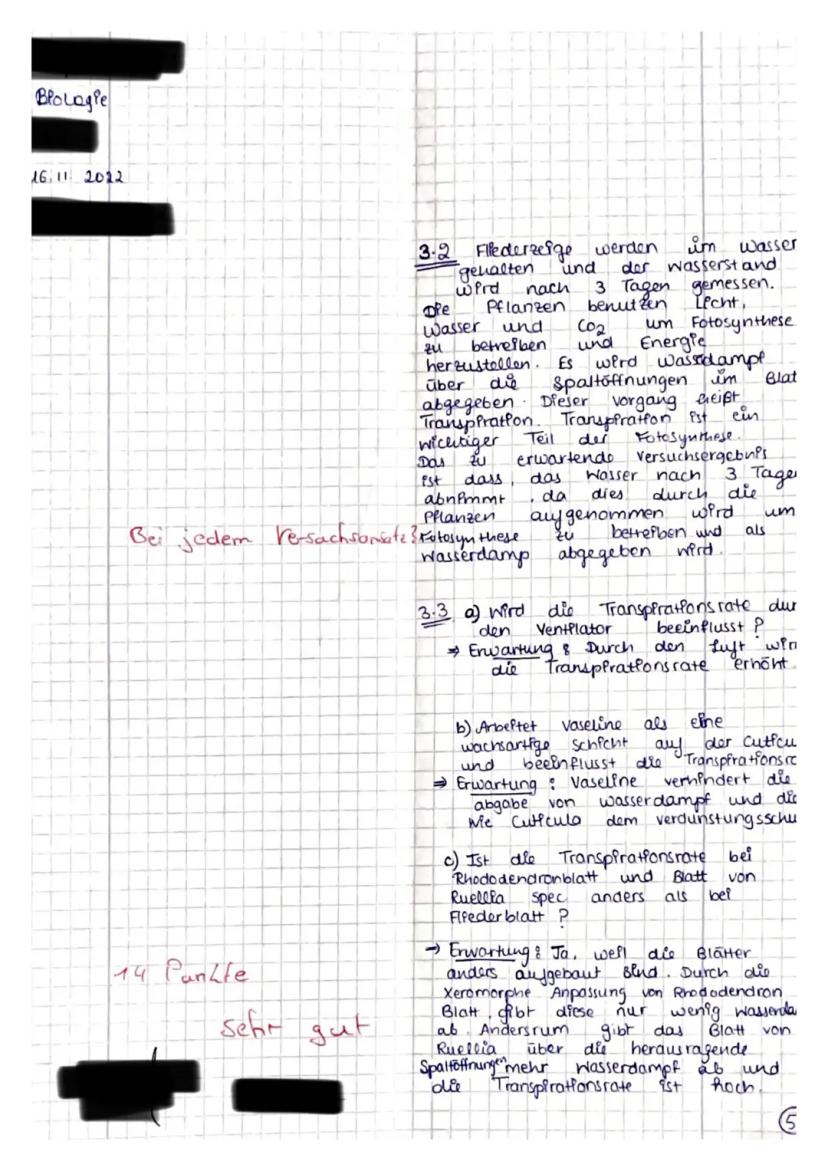 Biologie
16.11.2022
3.2 Fliederzeige werden im Wasser
gehalten und der Wasserstand
wird nach 3 Tagen gemessen.
Die Pflanzen benutzen Licht,
Wasser und CO2 um Fotosynthese
zu betreiben und Energie
herzustellen. Es wird Wasserdampf
über die Spaltöffnungen im Blat
abgegeben. Dieser Vorgang heißt
Transpiration. Transpiration ist ein
wichtiger Teil der Fotosynthese.
Das zu erwartende Versuchsergebnis
ist dass, das Wasser nach 3 Tage
abnimmt, da dies durch die
Pflanzen aufgenommen wird um
Bei jedem Versuchsansatz? Fotosynthese zu betreiben und als
Wasserdamp abgegeben wird.
3.3 a) Wird die Transpirationsrate dur
den Ventilator beeinflusst?
⇒ Erwartung: Durch den Luft wir
die Transpirationsrate erhöht.
b) Arbeitet Vaseline als eine
wachsartige Schicht auf der Cuticu
und beeinflusst die Transpirationsra
⇒ Erwartung: Vaseline verhindert die
abgabe von Wasserdampf und die
wie Cuticula dem verdunstungsschu
c) Ist die Transpirationsrate bei
Rhododendronblatt und Blatt von
Ruellia spec anders als bei
Fliederblatt?
→ Erwartung: Ja, weil die Blätter
anders aufgebaut sind. Durch die
Xeromorphe Anpassung von Rhododendron
Blatt, gibt diese nur wenig Wasserda
ab. Andersrum gibt das Blatt von
Ruellia über die herausragende
Spaltöffnungen mehr Wasserdampf ab und
die Transpirationsrate ist hoch.
14 Punkte
sehr gut
5